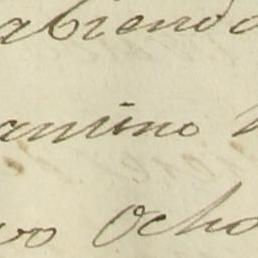 abiendo
amino
vo Ocho